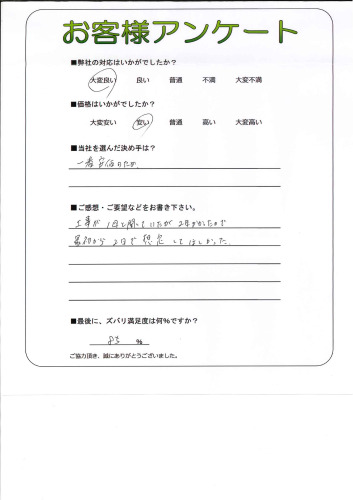 お客様アンケート
■弊社の対応はいかがでしたか?
大変良い 良い 普通 不満 大変不満
■価格はいかがでしたか?
大変安い 安い 普通 高い 大変高い
■当社を選んだ決め手は?
一番安価のため
■ご感想・ご要望などをお書き下さい。
工事が1日と聞いていたが2日かかったので
最初から2日で想定してほしかった
■最後に、ズバリ満足度は何%ですか?
85 %
ご協力頂き、誠にありがとうございました。